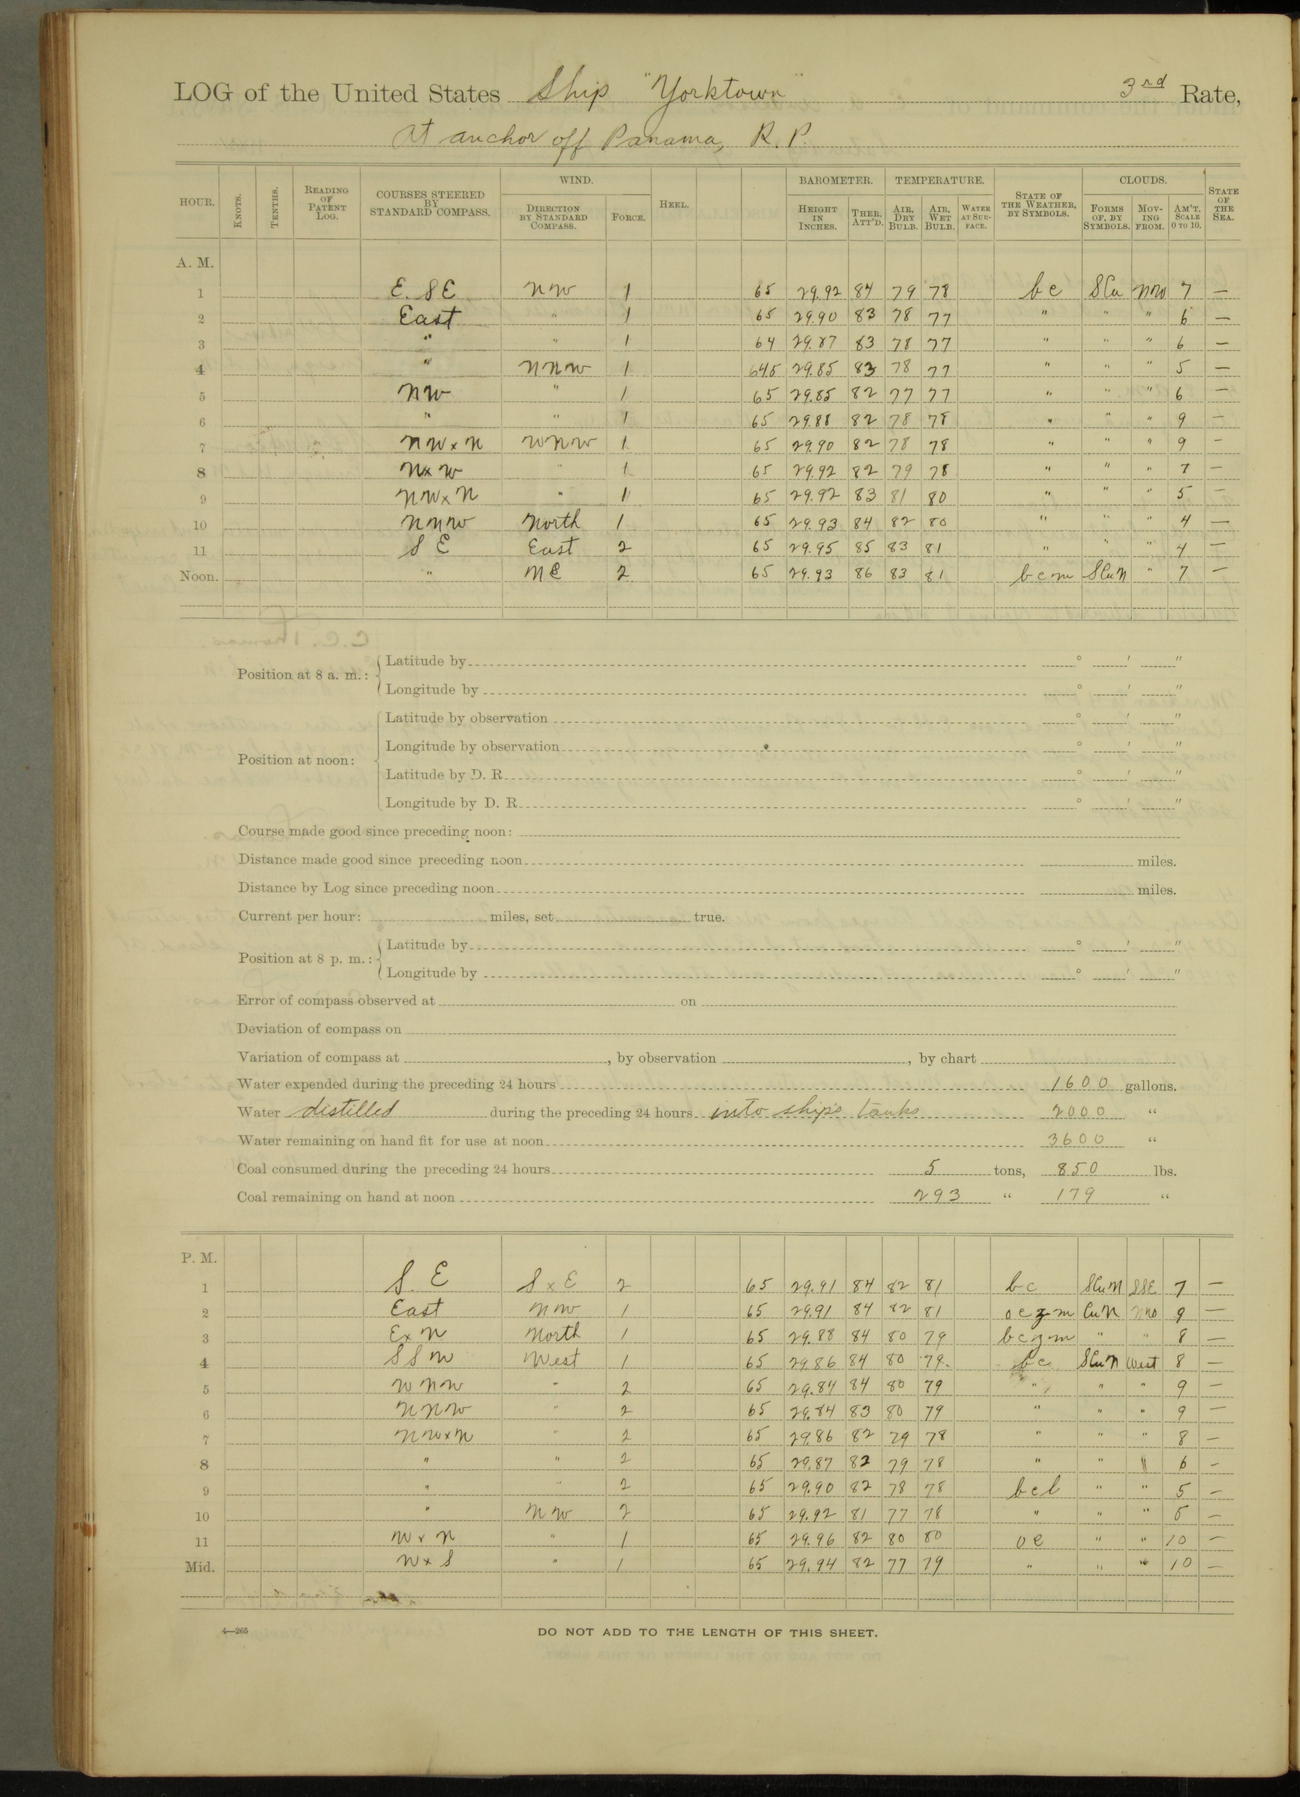 LOG of the United States Ship "Yorktown" 3rd Rate,
At anchor off Panama, R. P.
HOUR. KNOTS. TENTHS. READING OF PATENT LOG. COURSES STEERED BY STANDARD COMPASS. WIND. DIRECTION BY STANDARD COMPASS. FORCE. HEEL. BAROMETER. HEIGHT IN INCHES. THER. ATT'D. TEMPERATURE. AIR, DRY BULB. AIR, WET BULB. WATER AT SURFACE. STATE OF THE WEATHER, BY SYMBOLS. CLOUDS. FORMS OF, BY SYMBOLS. MOVING FROM. AM'T. SCALE 0 TO 10. STATE OF THE SEA.
A. M.
1 E. SE NW 1 65 29.92 84 79 78 bc SCu NW 7 —
2 East " 1 65 29.90 83 78 77 " " " 6 —
3 " " 1 64 29.87 83 78 77 " " " 6 —
4 " NNW 1 645 29.85 83 78 77 " " " 5 —
5 NW " 1 65 29.85 82 77 77 " " " 6 —
6 " " 1 65 29.88 82 78 78 " " " 9 —
7 NWxN WNW 1 65 29.90 82 78 78 " " " 9 —
8 NxW " 1 65 29.92 82 79 78 " " " 7 —
9 NWxN " 1 65 29.92 83 81 80 " " " 5 —
10 NNW North 1 65 29.93 84 82 80 " " " 4 —
11 SE East 2 65 29.95 85 83 81 " " " 4 —
Noon. " NE 2 65 29.93 86 83 81 bcm SCuN " 7 —
Position at 8 a. m.: Latitude by ° ' "
Longitude by ° ' "
Position at noon: Latitude by observation ° ' "
Longitude by observation ° ' "
Latitude by D. R. ° ' "
Longitude by D. R. ° ' "
Course made good since preceding noon:
Distance made good since preceding noon miles.
Distance by Log since preceding noon miles.
Current per hour: miles, set true.
Position at 8 p. m.: Latitude by ° ' "
Longitude by ° ' "
Error of compass observed at on
Deviation of compass on
Variation of compass at , by observation , by chart
Water expended during the preceding 24 hours 1600 gallons.
Water distilled during the preceding 24 hours into ship's tanks 2000 "
Water remaining on hand fit for use at noon 3600 "
Coal consumed during the preceding 24 hours 5 tons, 850 lbs.
Coal remaining on hand at noon 293 " 179 "
P. M.
1 S. E SxE 2 65 29.91 84 82 81 bc SCuN SSE 7 —
2 East NW 1 65 29.91 84 82 81 ocqm CuN 9 —
3 ExN North 1 65 29.88 84 80 79 bcqm " " 8 —
4 SSW West 1 65 29.86 84 80 79. bc SCuN West 8 —
5 WNW " 2 65 29.84 84 80 79 " " " 9 —
6 NNW " 2 65 29.84 83 80 79 " " " 9 —
7 NWxN " 2 65 29.86 82 79 78 " " " 8 —
8 " " 2 65 29.87 82 79 78 " " " 6 —
9 " " 2 65 29.90 82 78 78 bcl " " 5 —
10 " NW 2 65 29.92 81 77 78 " " " 5 —
11 WxN " 1 65 29.96 82 80 80 oc " " 10 —
Mid. WxS " 1 65 29.94 82 77 79 " " " 10 —
4—265 DO NOT ADD TO THE LENGTH OF THIS SHEET.